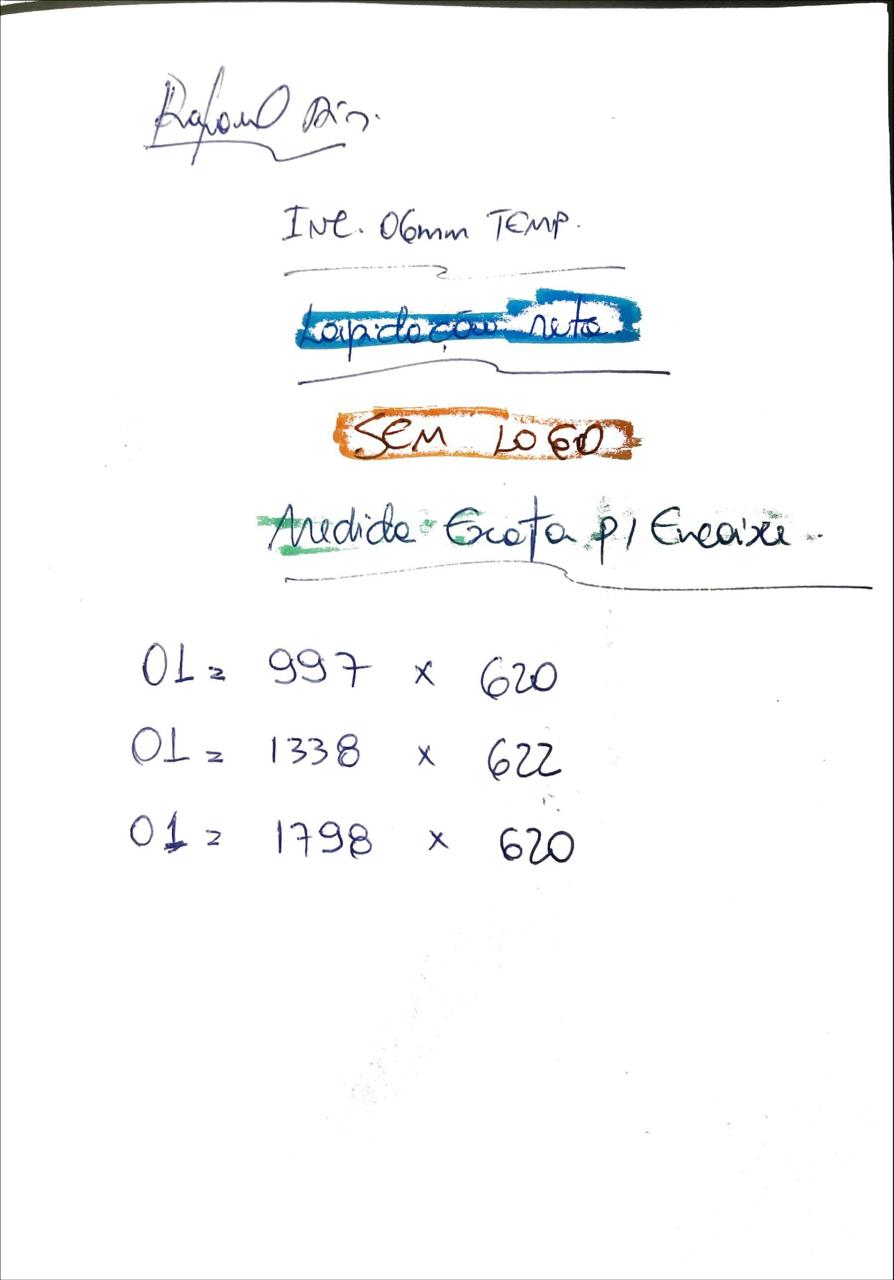 Rafael
INC. 06mm TEMP.
Lapidação reta
SEM LOGO
Medida Exata p/ Encaixe.
01 = 997 x 620
01 = 1338 x 622
01 = 1798 x 620